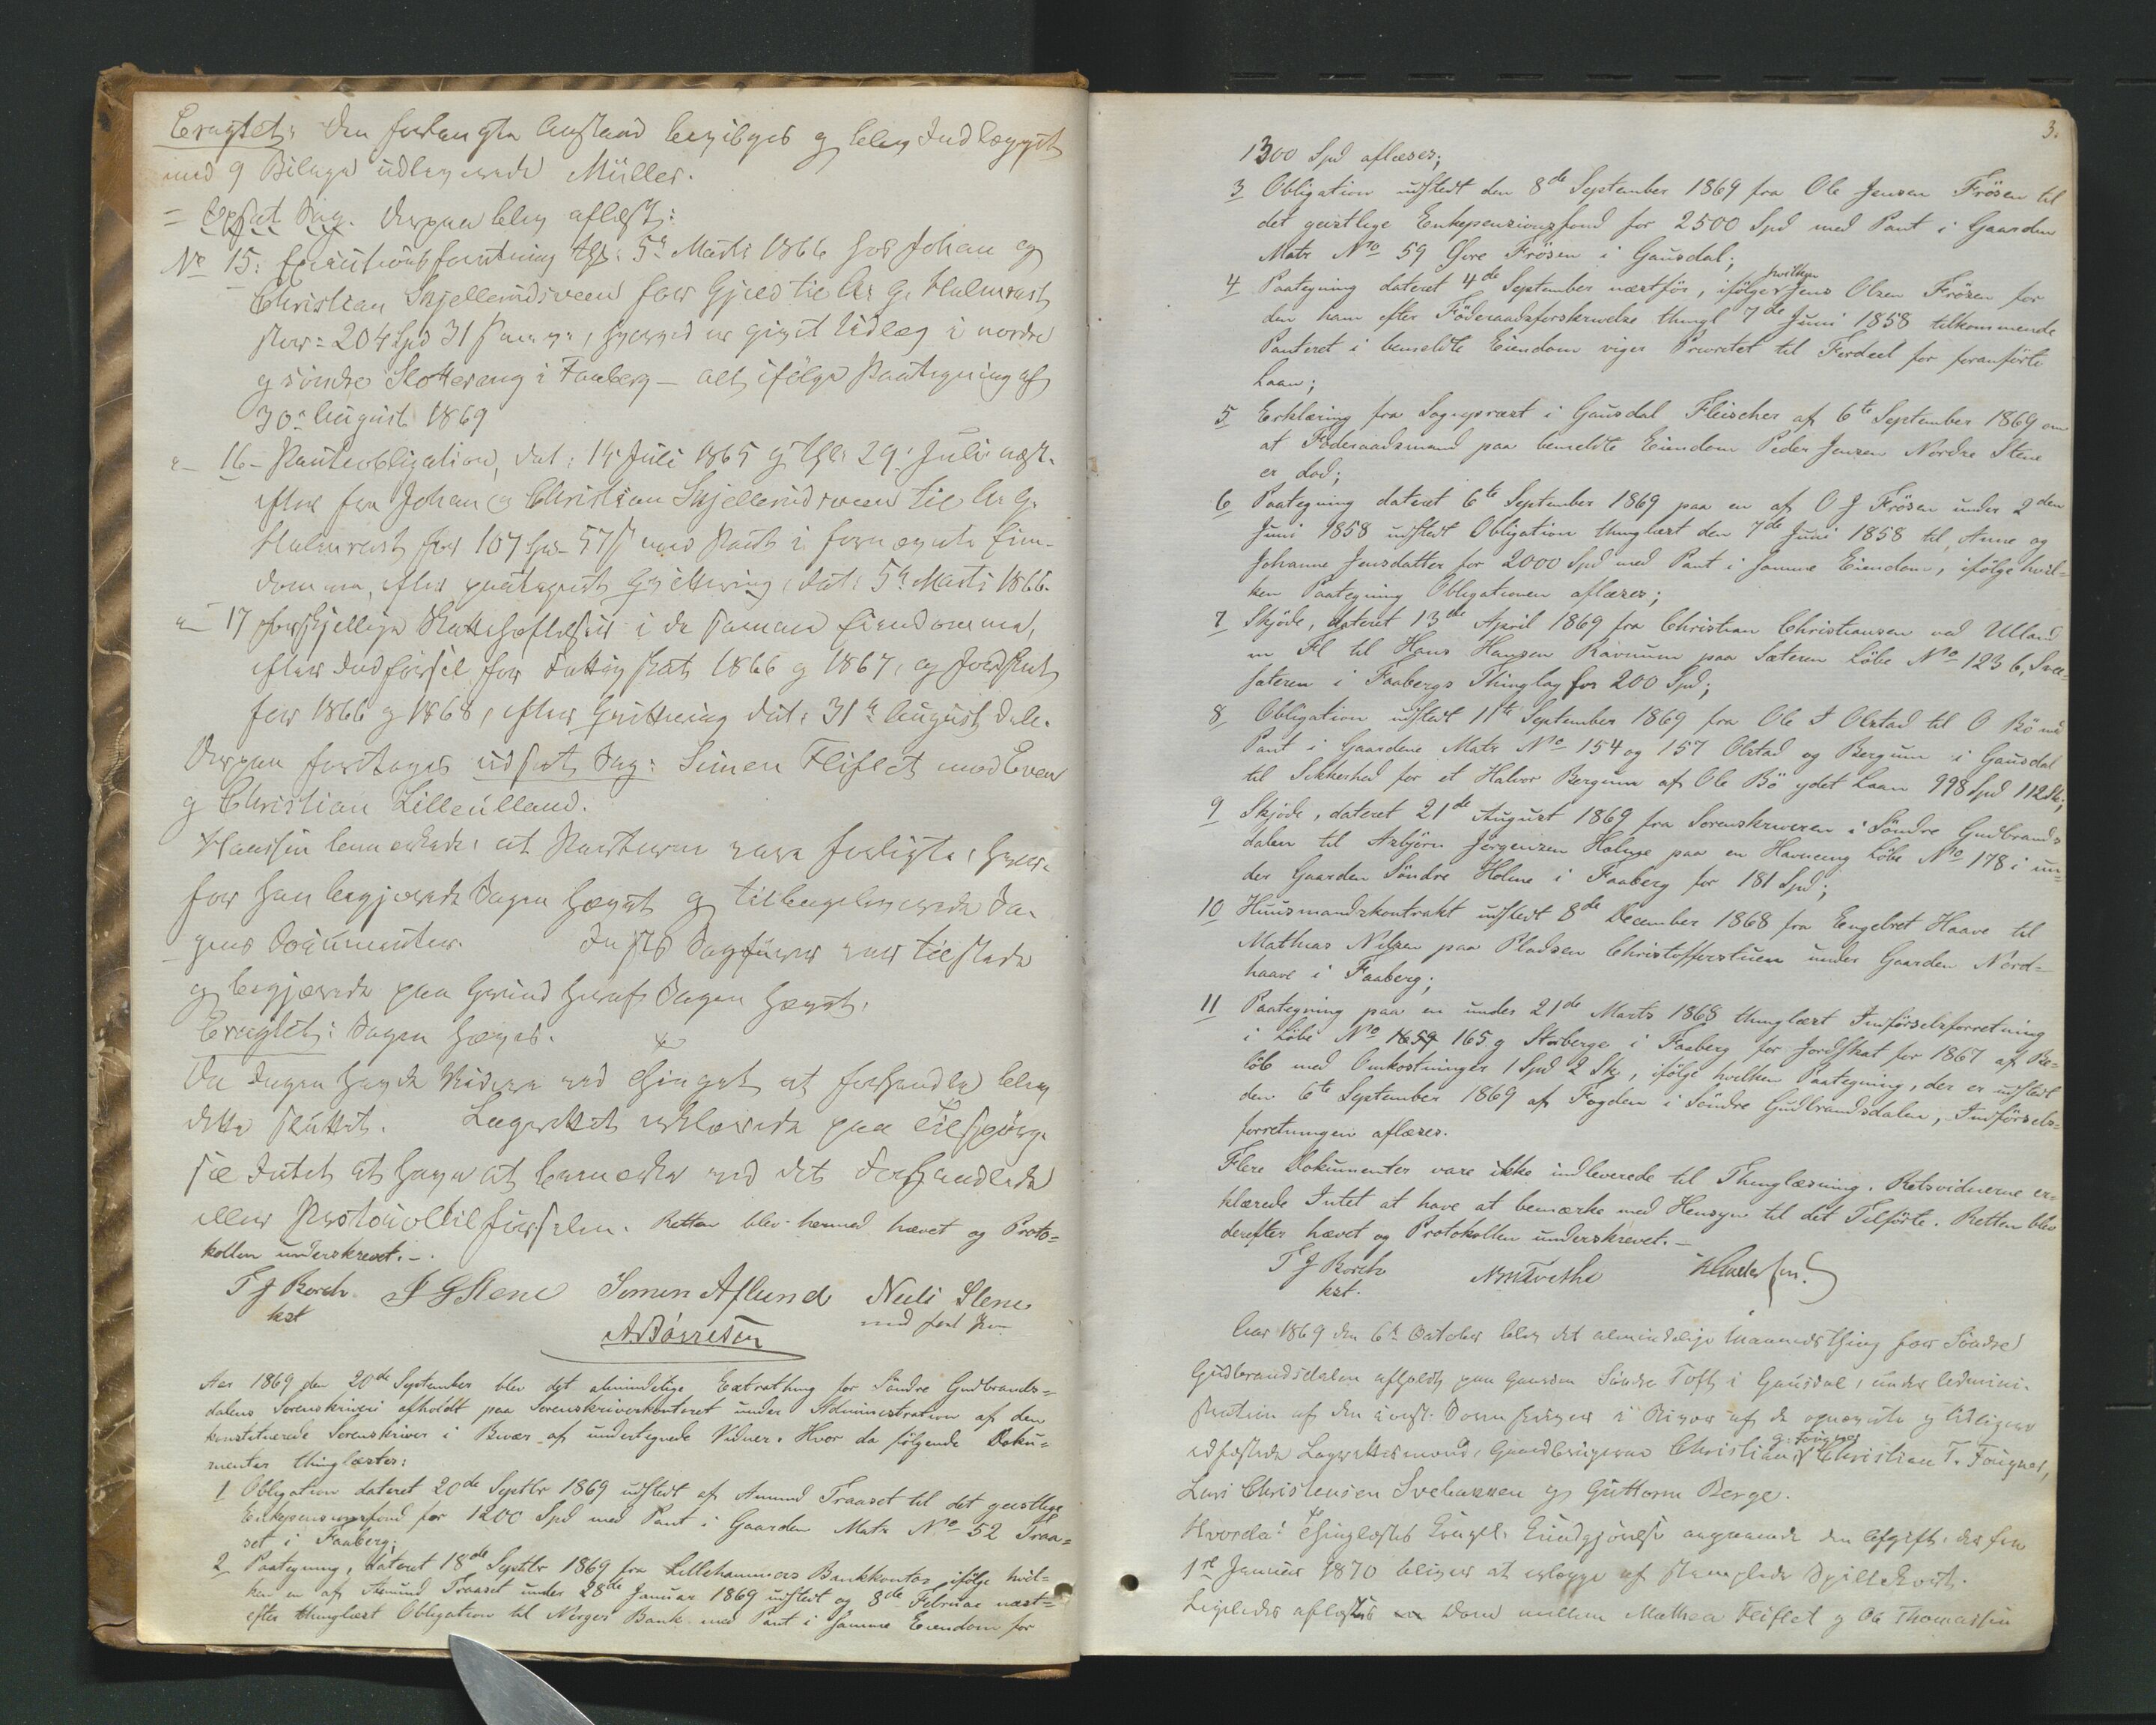 Eragtet: Den forlangte Anstand bevilges og blev Indlægget
med 9 Bilage udleverede Müller.
= Opsat Sag. Derpaa blev aflæst:
No 15: Executionsforretning thgl: 5te Marts 1866 hos Johan og
Christian Skjellerudsveen for Gjeld til A. G. Halmrast
stor = 204 Spd 31 s, hvorved er givet Udlæg i nordre
og søndre Slotteræng i Faaberg – alt ifølge Paategning af
30te August 1869
" – 16 – Panteobligation, dat: 14 Juli 1865 og thgl: 29: Juli næst-
efter fra Johan og Christian Skjellerudsveen til A. G.
Halmrast for 107 Spd – 57 s med Pant i fornævnte Eien-
domme, efter paategnet Qvittering, dat: 5te Marts 1866.
" – 17 forskjellige Skattehæftelser i de samme Eiendomme,
efter Indførsel for Fattigskat 1866 og 1867, og Jordskat
for 1866 og 1868, efter Qvittering dat: 31te August d.A.
Derpaa foretages udsat Sag: Simen Fliflet mod Even
og Christian Lilleulland.
Hanssen bemærkede, at Parterne vare forligte, hvor-
for han begjærede Sagen hævet og tilbageleverede Sa-
gens Documenter. Indst. Sagfører var tilstede
og begjærede paa Grund heraf Sagen hævet.
Eragtet: Sagen hæves.
Da Ingen havde Videre ved Thinget at forhandle blev
dette sluttet. Lagrettet erklærede paa Tilspørg-
sel Intet at have at bemærke ved det Forhandlede
eller Protocoltilførselen. Retten blev hermed hævet og Proto=
kollen underskrevet. –
T J Borch J G Stene Simen Aflund Neils Stene
kst med ført Pen
A Børresen
Aar 1869 den 20de September blev det almindelige Extrathing for Søndre Gudbrands=
dalens Sorenskriveri afholdt paa Sorenskriverkontoret under Administration af den
konstituerede Sorenskriver i Overvær af undertegnede Vidner. Hvor da følgende Doku=
menter thinglæstes:
1 Obligation dateret 20de Septbr 1869 udstedt af Amund Traaset til det geistlige
Enkepensionsfond for 1200 Spd med Pant i Gaarden Matr No 52 Traa=
set i Faaberg;
2 Paategning, dateret 18de Septbr 1869 fra Lillehammers Bankkontor ifølge hvil=
ken en af Amund Traaset under 28de Januar 1869 udstedt og 8de Februar næst=
efter thinglæst Obligation til Norges Bank med Pant i samme Eiendom for
3.
1300 Spd aflæses;
3 Obligation udstedt den 8de September 1869 fra Ole Jensen Frösen til
det geistlige Enkepensionsfond for 2500 Spd med Pant i Gaarden
Matr No 59 Øvre Frösen i Gausdal;
4 Paategning dateret 4de September næstfør, ifølge hvilken Jens Olsen Frösen for
den ham efter Föderaadsforskrivelse thingl 7de Juni 1858 tilkommende
Panteret i bemeldte Eiendom viger Prioritet til Fordeel for foranførte
Laan;
5 Erklæring fra Sognepræst i Gausdal Fleischer af 6te September 1869 om
at Föderaadsmand paa bemeldte Eiendom Peder Jensen Nordre Stene
er død;
6 Paategning dateret 6te September 1869 paa en af O J Frösen under 2den
Juni 1858 udstedt Obligation thinglæst den 7de Juni 1858 til Anne og
Johanne Jensdatter for 2000 Spd med Pant i samme Eiendom, ifølge hvil=
ken Paategning Obligationen aflæses;
7 Skjöde, dateret 13de April 1869 fra Christian Christiansen ved Ulland
m Fl til Hans Hansen Ravnum paa Sæteren Löbe No 123 b, Svea-
sæteren i Faabergs Thinglag for 200 Spd;
8 Obligation udstedt 11te September 1869 fra Ole T Olstad til O Bö med
Pant i Gaardene Matr No 154 og 157 Olstad og Bergum i Gausdal
til Sikkerhed for et Halvor Bergum af Ole Bö ydet Laan 998 Spd 112 Sk;
9 Skjöde, dateret 21de August 1869 fra Sorenskriveren i Söndre Gudbrands
dalen til Asbjörn Jörgensen Holme paa en Havnegang Löbe No 178 i un=
der Gaarden Söndre Holme i Faaberg for 181 Spd;
10 Huusmandskontrakt udstedt 8de December 1868 fra Engebret Haave til
Mathias Nilsen paa Pladsen Christofferstuen under Gaarden Nord=
haave i Faaberg;
11 Paategning paa en under 21de Marts 1868 thinglæst Indförselsforretning
i Löbe No 1659 165 g Storberge i Faaberg for Jordskat for 1867 af Be=
löb med Omkostninger 1 Spd 2 Sk, ifølge hvilken Paategning, der er udstedt
den 6te September 1869 af Fogden i Söndre Gudbrandsdalen, Indförsels=
forretningen aflæses.
Flere Dokumenter vare ikke indleverede til Thinglæsning. Retsvidnerne er=
klærede Intet at have at bemærke med Hensyn til det Tilförte. Retten blev
derefter hævet og Protokollen underskrevet. –
T J Borch
kst.
Aar 1869 den 6te October blev det almindelige Maanedsthing for Söndre
Gudbrandsdalen afholdt paa Gaarden Söndre Toft i Gausdal, under Admini-
stration af den const: Sorenskriver i Overvær af de opnævnte og tidligere
edfæstede Lagrettesmænd, Gaardbrugerne Christian G. Fougner, Christian T. Fougner,
Lars Christensen Svehaugen og Guttorm Berge.
Hvorda: Thinglæstes Kongel: Kundgjörelse angaaende den Afgift, der fra
1ste Januar 1870 bliver at erlægge af stemplede Spillekort.
Ligeledes aflæstes en Dom mellem Mathea Fliflet og Ole Thomassen